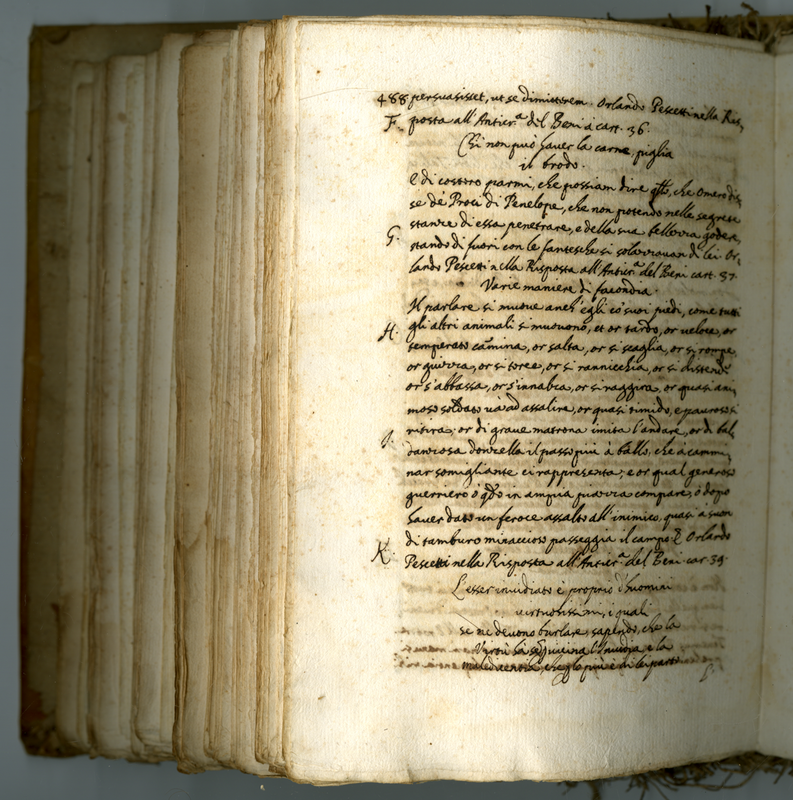 488 persuasisset, ut se dimitterem. Orlando Pescetti nella Ris,
F. posta all'Anticr.ª del Beni à cart. 36.
Chi non può haver la carne, piglia
il brodo.
E di costoro parmi, che possiam dire qllo, che Omero dis,
se de' Proci di Penelope, che non potendo nelle segrete
stanze di essa penetrare, e della sua bellezza godere,
G. stando di fuori con le fantesche si solazzavan di lei. Or,
lando Pescetti nella Risposta all'Anticr.ª del Beni cart. 37.
Varie maniere di facondia.
Il parlare si muove anch'egli co' suoi piedi, come tutti
H. gli altri animali si muovono, et or tardo, or veloce, or
temperato camina, or salta, or si scaglia, or si rompe,
or guizza, or si torce, or si rannicchia, or si distende
or s'abbassa, or s'innalza, or si raggira, or quasi ani,
moso soldato và ad assalire, or quasi timido, e pauroso si
ritira; or di grave matrona imita l'andare, or di bal,
I. danzosa donzella il passo più à ballo, che à cammi,
nar somigliante ci rappresenta; e or qual generoso
guerriero ò qdo in ampia piazza compare, ò dopo
haver dato un feroce assalto all'inimico, quasi à suon
di tamburo minaccioso passeggia il campo. Orlando
K. Pescetti nella Risposta all'Anticr.ª del Beni car. 39.
L'esser invidiato è proprio d'huomini
virtuosissimi, i quali
se ne devono burlare, sapendo, che la
Virtù hà vicina l'Invidia e la
maledicenza, che